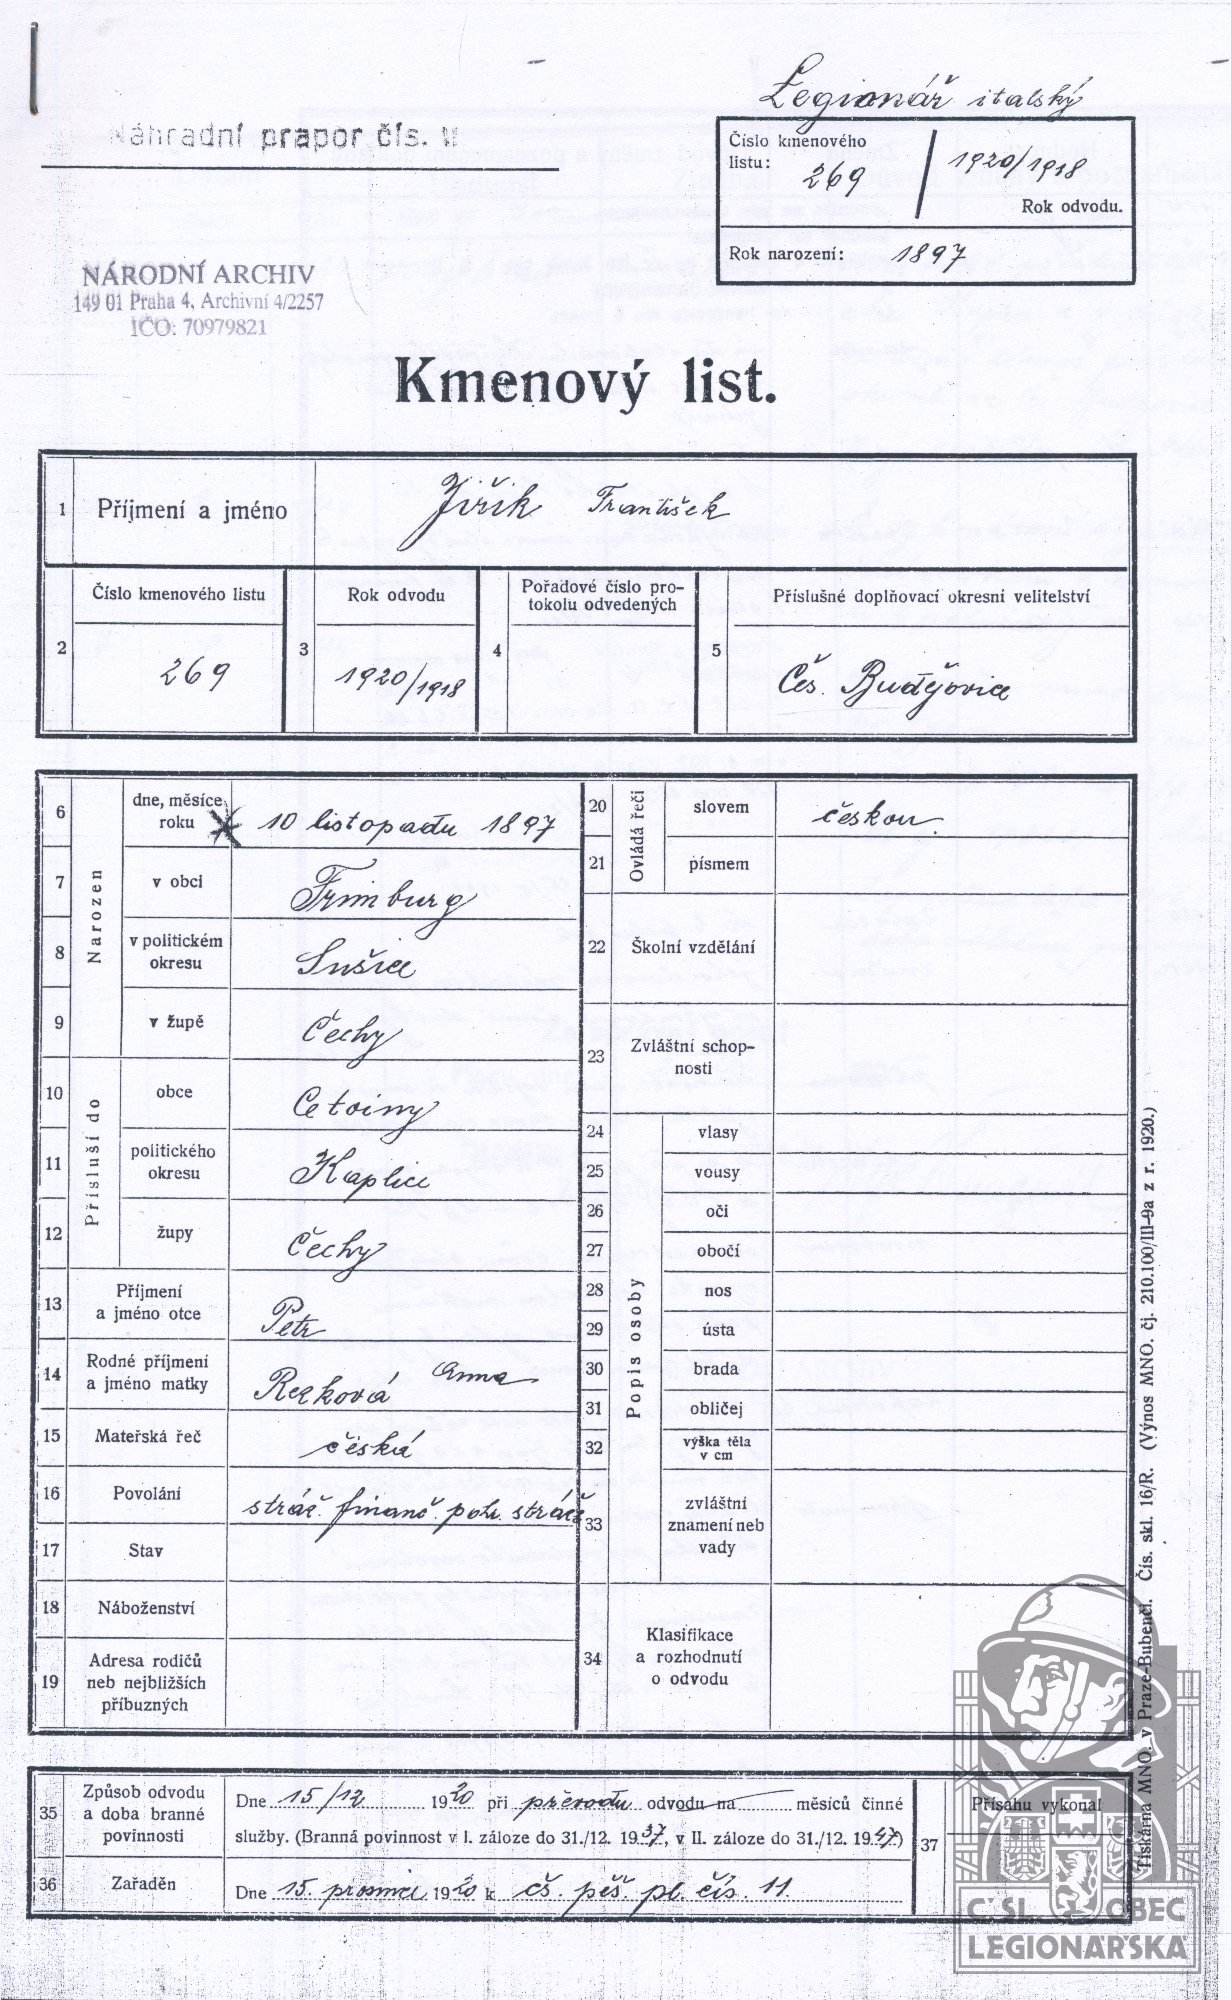 Legionář italský
Náhradní prapor čís. II
Číslo kmenového
listu: 269
1920/1918
Rok odvodu.
Rok narození: 1897
NÁRODNÍ ARCHIV
149 01 Praha 4, Archivní 4/2257
IČO: 70979821
Kmenový list.
1 Příjmení a jméno Jiřik František
2 Číslo kmenového listu 269
3 Rok odvodu 1920/1918
4 Pořadové číslo pro-
tokolu odvedených
5 Příslušné doplňovací okresní velitelství
Čes. Budějovice
Narozen
6 dne, měsíce,
roku 10 listopadu 1897
7 v obci Frimburg
8 v politickém
okresu Sušice
9 v župě Čechy
Přísluší do
10 obce Cetviny
11 politického
okresu Kaplice
12 župy Čechy
13 Příjmení
a jméno otce Petr
14 Rodné příjmení
a jméno matky Rezková Anna
15 Mateřská řeč česká
16 Povolání stráž. finanč. pohr. stráže
17 Stav
18 Náboženství
19 Adresa rodičů
neb nejbližších
příbuzných
Ovládá řeči
20 slovem českou.
21 písmem
22 Školní vzdělání
23 Zvláštní schop-
nosti
Popis osoby
24 vlasy
25 vousy
26 oči
27 obočí
28 nos
29 ústa
30 brada
31 obličej
32 výška těla
v cm
33 zvláštní
znamení neb
vady
34 Klasifikace
a rozhodnutí
o odvodu
35 Způsob odvodu
a doba branné
povinnosti
Dne 15/12 1920 při převodu odvodu na měsíců činné
služby. (Branná povinnost v I. záloze do 31./12. 1937, v II. záloze do 31./12. 1947)
36 Zařaděn Dne 15. prosince 1920 k čs. pěš. pl. čís. 11.
37 Přísahu vykonal
Tiskárna MNO. v Praze-Bubenči. Čís. skl. 16/R. (Výnos MNO. čj. 210.100/III-9a z r. 1920.)
ČSL. OBEC
LEGIONÁŘSKÁ